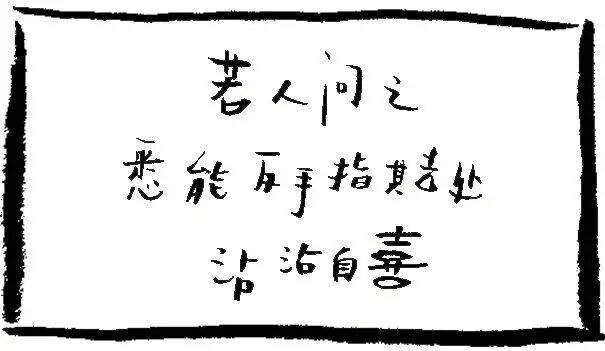 若人问之
悉能反手指其去处
沾沾自喜